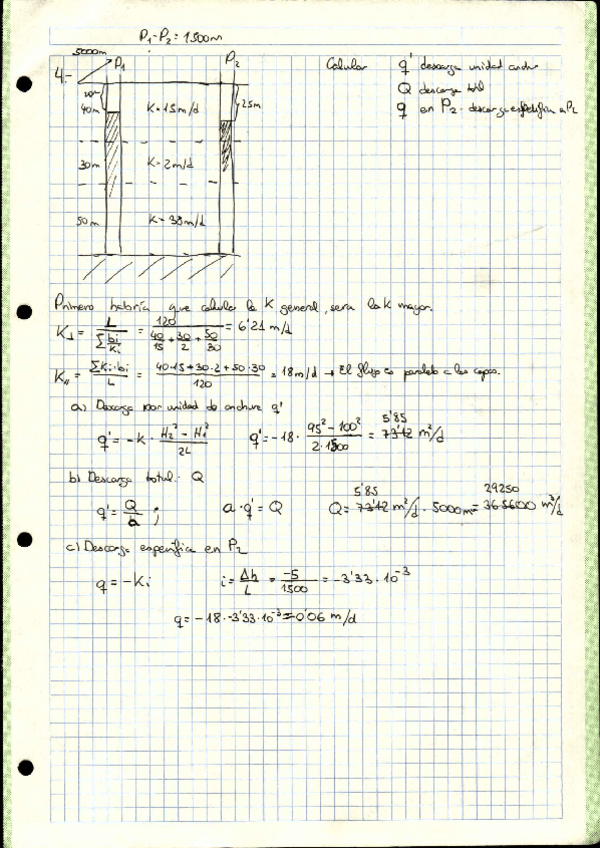 P₁-P₂ = 1500m
5000m
P₁
P₂
4.-
10m
40m
K=15m/d
25m
30m
K=2m/d
50m
K=30m/d
Calcular q' descarga unidad anchura
Q descarga total
q en P₂ descarga específica en P₂
Primero habría que calcular la K general, sera la K mayor.
K⊥ = L / Σ bi/Ki = 120 / (40/15 + 30/2 + 50/30) = 6'21 m/d
K∥ = Σ Ki·bi / L = (40·15+30·2+50·30) / 120 = 18m/d → El flujo es paralelo a las capas.
a) Descarga por unidad de anchura q'
q' = -K · (H₂² - H₁²) / 2L q' = -18 · (95² - 100²) / 2·1500 = 5'85 m²/d
b) Descarga total. Q
q' = Q/a ; a·q' = Q Q = 5'85 m²/d · 5000m = 29250 m³/d
c) Descarga específica en P₂
q = -Ki i = Δh/L = -5/1500 = -3'33·10⁻³
q = -18·-3'33·10⁻³ = 0'06 m/d